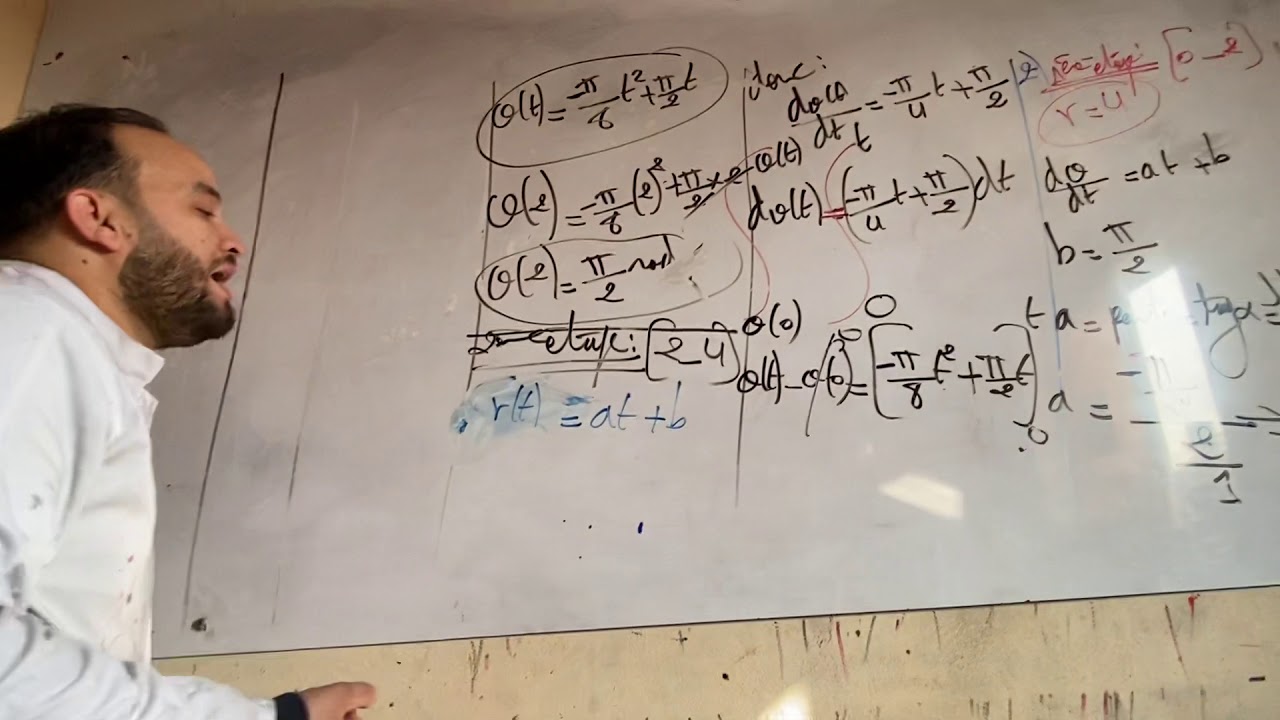 θ(t) = -π/8 t² + π/2 t
θ(2) = -π/8 (2)² + π/2 × 2
θ(2) = π/2 rad
2 etape: [2 4]
r(t) = at + b
donc:
dθ(t)/dt = -π/4 t + π/2
θ(t) t
dθ(t) = (-π/4 t + π/2) dt
θ(0) 0
θ(t) - θ(0) = [-π/8 t² + π/2 t]
t
0
etape [0 - 2]
r = 4
dθ/dt = at + b
b = π/2
a =
a =